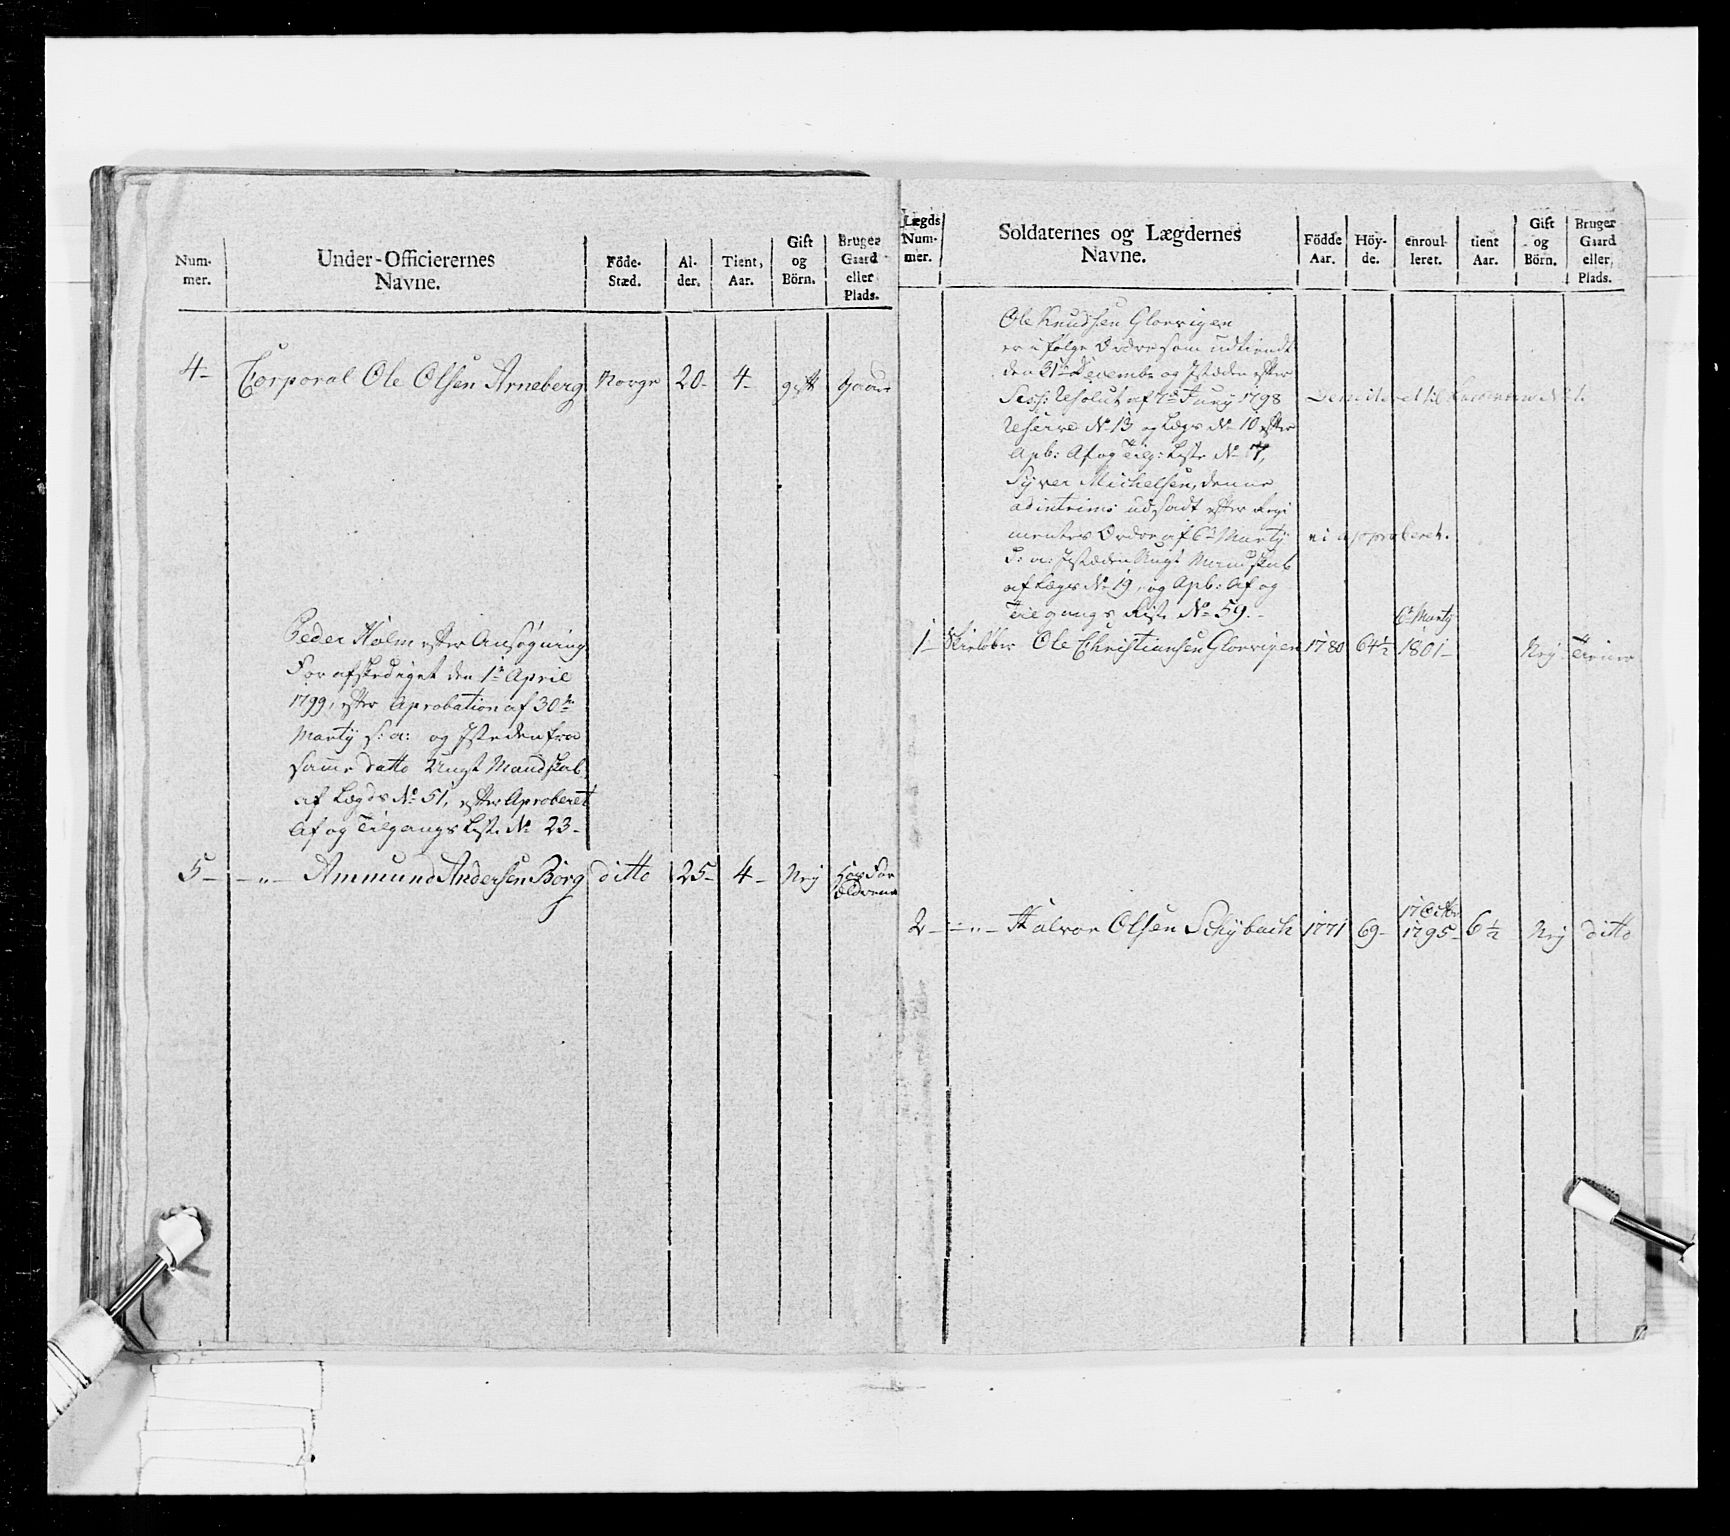 Num-
mer.
Under-Officierernes
Navne.
Föde-
Stæd.
Al-
der.
Tient,
Aar.
Gift
og
Börn.
Bruger
Gaard
eller
Plads.
4- Corporal Ole Olsen Arneberg Norge 20- 4- gift Gaard
Peder Holm efter Ansøgning
For afskediget den 1te April
1799, efter Aprobation af 30te
Marty s: a: og Isteden fra
samme datto Ungt Mandskab
af Lægds No 51, efter Aproberet
Af og Tilgangs Liste No 23-
5- -"- Ammund Andersen Borg ditto 25- 4- Nej Hos For
ældrene
Lægds
Num-
mer.
Soldaternes og Lægdernes
Navne.
Födde
Aar.
Höy-
de.
enroul-
leret.
tient
Aar.
Gift
og
Börn.
Bruger
Gaard
eller
Plads.
Ole Knudsen Glorvigen
er i følge Ordre som udtient
den 31te Decembr og Istæden efter
Sess: Resolut af 7de Juny 1798
Reserve No 13 og Lægs No 10 efter
Apb: Af og Tilg: Liste No 17,
Syver Michelsen, denne
ad interims udsadt efter Regi
mentets Ordre af 6te Marty ei approberet.
s: a: Istæden Ungt Mandskab
af Lægs No 19, og Apb: Af og
Tilgangs Liste No 59.-
6te Marty
1- Skieløber Ole Christiansen Glorvigen 1780 64½ 1801- Nej Tiener
17 Octbr
2- -"- Halvor Olsen Schÿbach 1771 69- 1795- 6½ Nej ditto